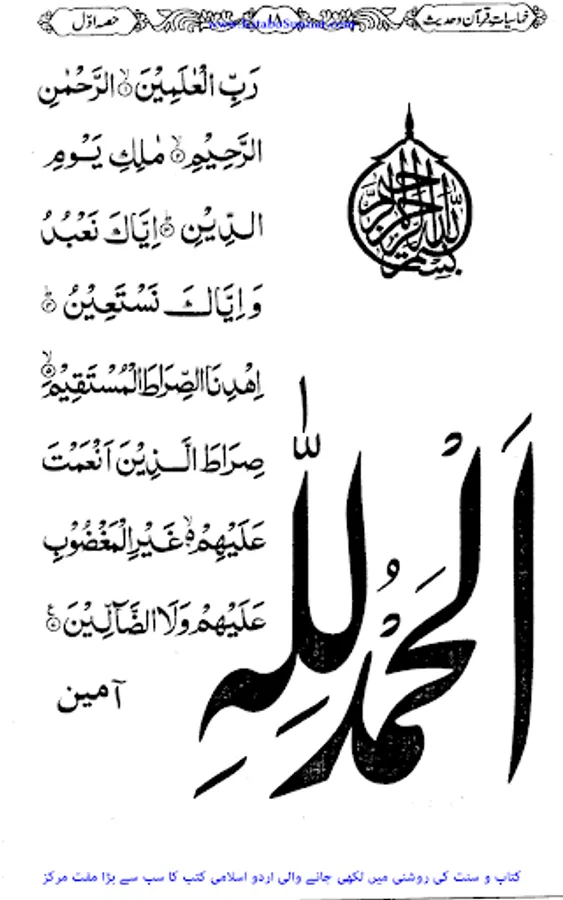 خاصیات قرآن و حدیث ۱۸ حصہ اوّل
www.KitaboSunnat.com
بِسْمِ اللّٰهِ الرَّحْمٰنِ الرَّحِيْمِ
اَلْحَمْدُ لِلّٰهِ
رَبِّ الْعٰلَمِيْنَ ۙ﴿۱﴾ الرَّحْمٰنِ
الرَّحِيْمِ ۙ﴿۲﴾ مٰلِكِ يَوْمِ
الدِّيْنِ ؕ﴿۳﴾ اِيَّاكَ نَعْبُدُ
وَ اِيَّاكَ نَسْتَعِيْنُ ؕ﴿۴﴾
اِهْدِنَا الصِّرَاطَ الْمُسْتَقِيْمَ ۙ﴿۵﴾
صِرَاطَ الَّذِيْنَ اَنْعَمْتَ
عَلَيْهِمْ ۙ﴿۶﴾ غَيْرِ الْمَغْضُوْبِ
عَلَيْهِمْ وَلَا الضَّآلِّيْنَ ﴿۷﴾
آمین
کتاب و سنت کی روشنی میں لکھی جانے والی اردو اسلامی کتب کا سب سے بڑا مفت مرکز